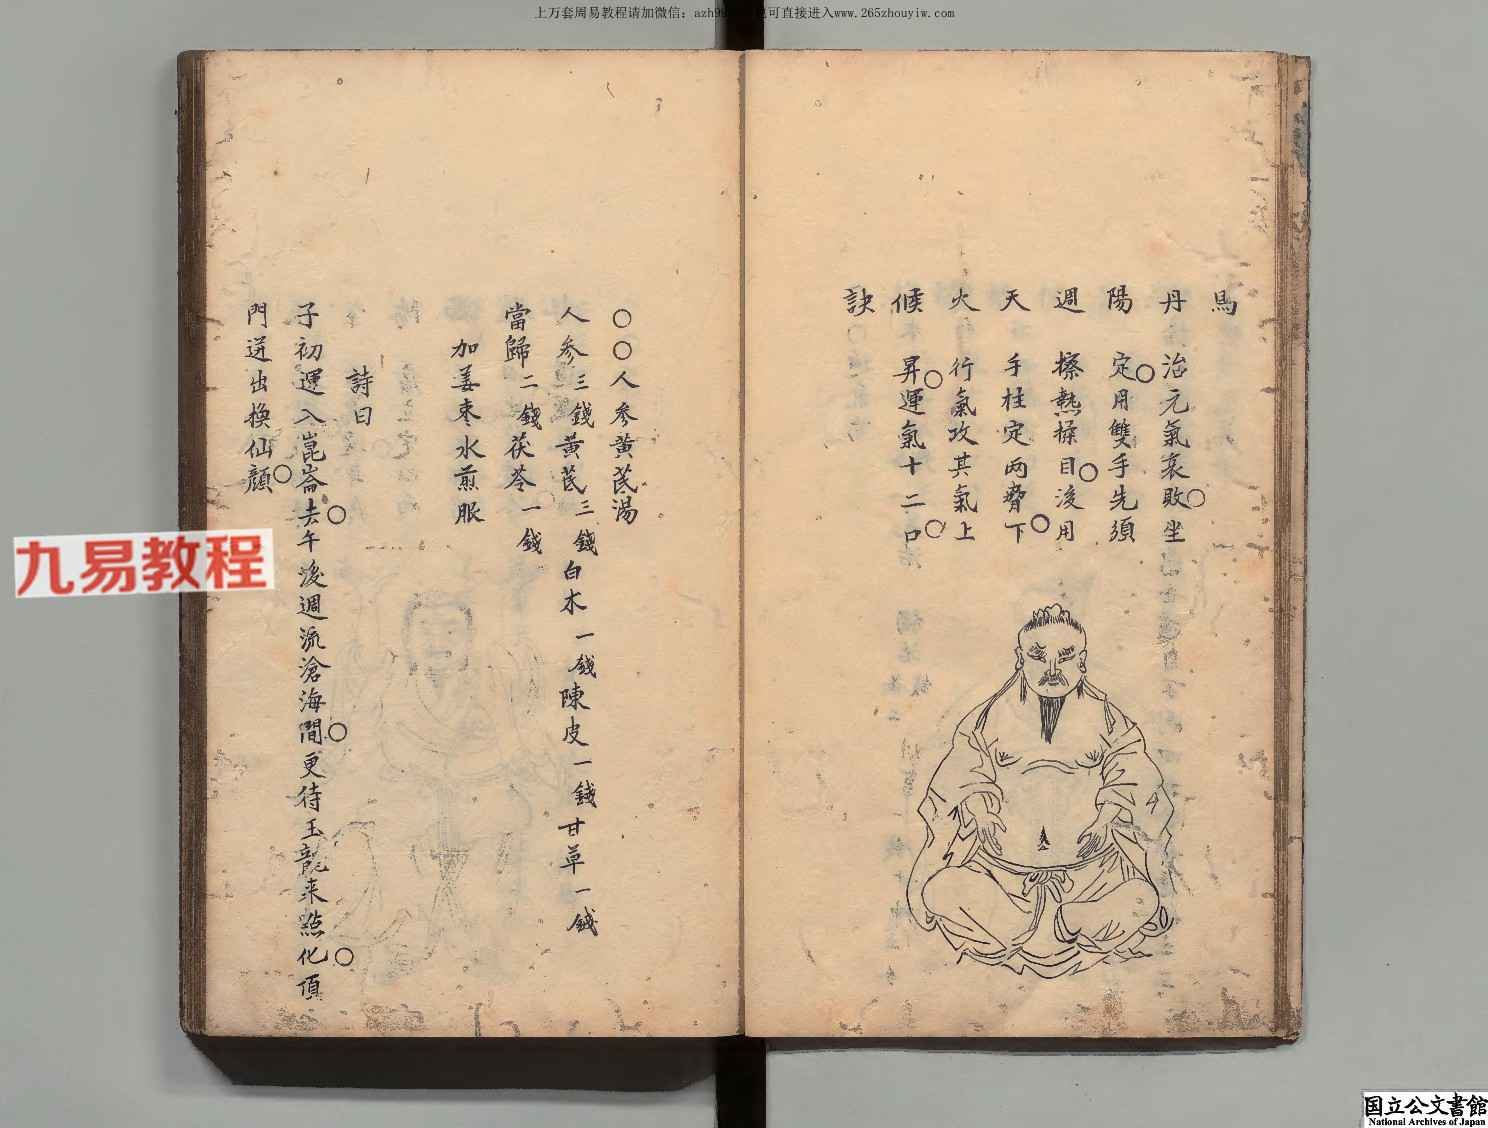 上万套周易教程请加微信：azh9
可直接进入www.265zhouyiw.com
馬
丹　治元氣衰敗○坐
陽　定○用雙手先須
週　擦熱揉目○後用
天　手柱定两脅下○
火　行氣攻其氣上
候　昇○運氣十二口○
訣
○○人参黄芪湯
人参三錢黄芪三錢白术一錢陳皮一錢甘草一錢
當歸二錢茯苓一錢
加姜枣水煎服
詩曰
子初運入崑崙去○午後週流滄海間○更待玉龍来㸃化○頂
門迸出換仙顔○
九易教程
国立公文書館
National Archives of Japan